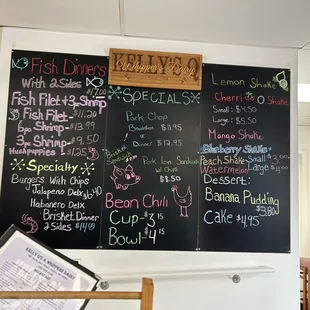 KELLY'S-O
Fish Dinners
With 2 Sides
$17.00
Fish Filet + 3 Shrimp
Fish Filet
$11.50
6pc Shrimp
$13.99
3pc Shrimp
$9.50
Hushpuppies
$1.25
Specialty
Burgers With Chips
Jalapeno Delx
Habanero Delx
Brisket Dinner
2 Sides $14.99
SPECIALS
Pork Chop
Breakfast $11.95
Dinner $12.95
Brisket Sandwich
Pork Loin Sandwich
w/ Chips
$8.50
Bean Chili
Cup $3.15
Bowl $4.15
Lemon Shake
Cherri O Shake
Small $4.50
Large $5.50
Mango Shake
Blueberry Shake
Peach Shake
Watermelon
Small
Large
Dessert:
Banana Pudding
$3.80
Cake $4.95